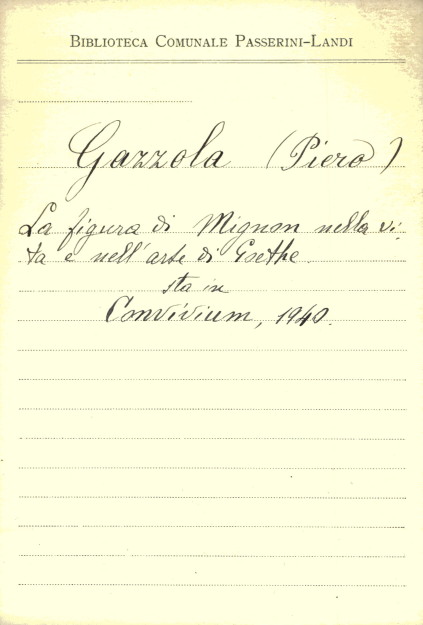 Biblioteca Comunale Passerini-Landi
Gazzola (Piero)
La figura di Mignon nella vi-
ta e nell'arte di Goethe.
sta in
Convivium, 1940.